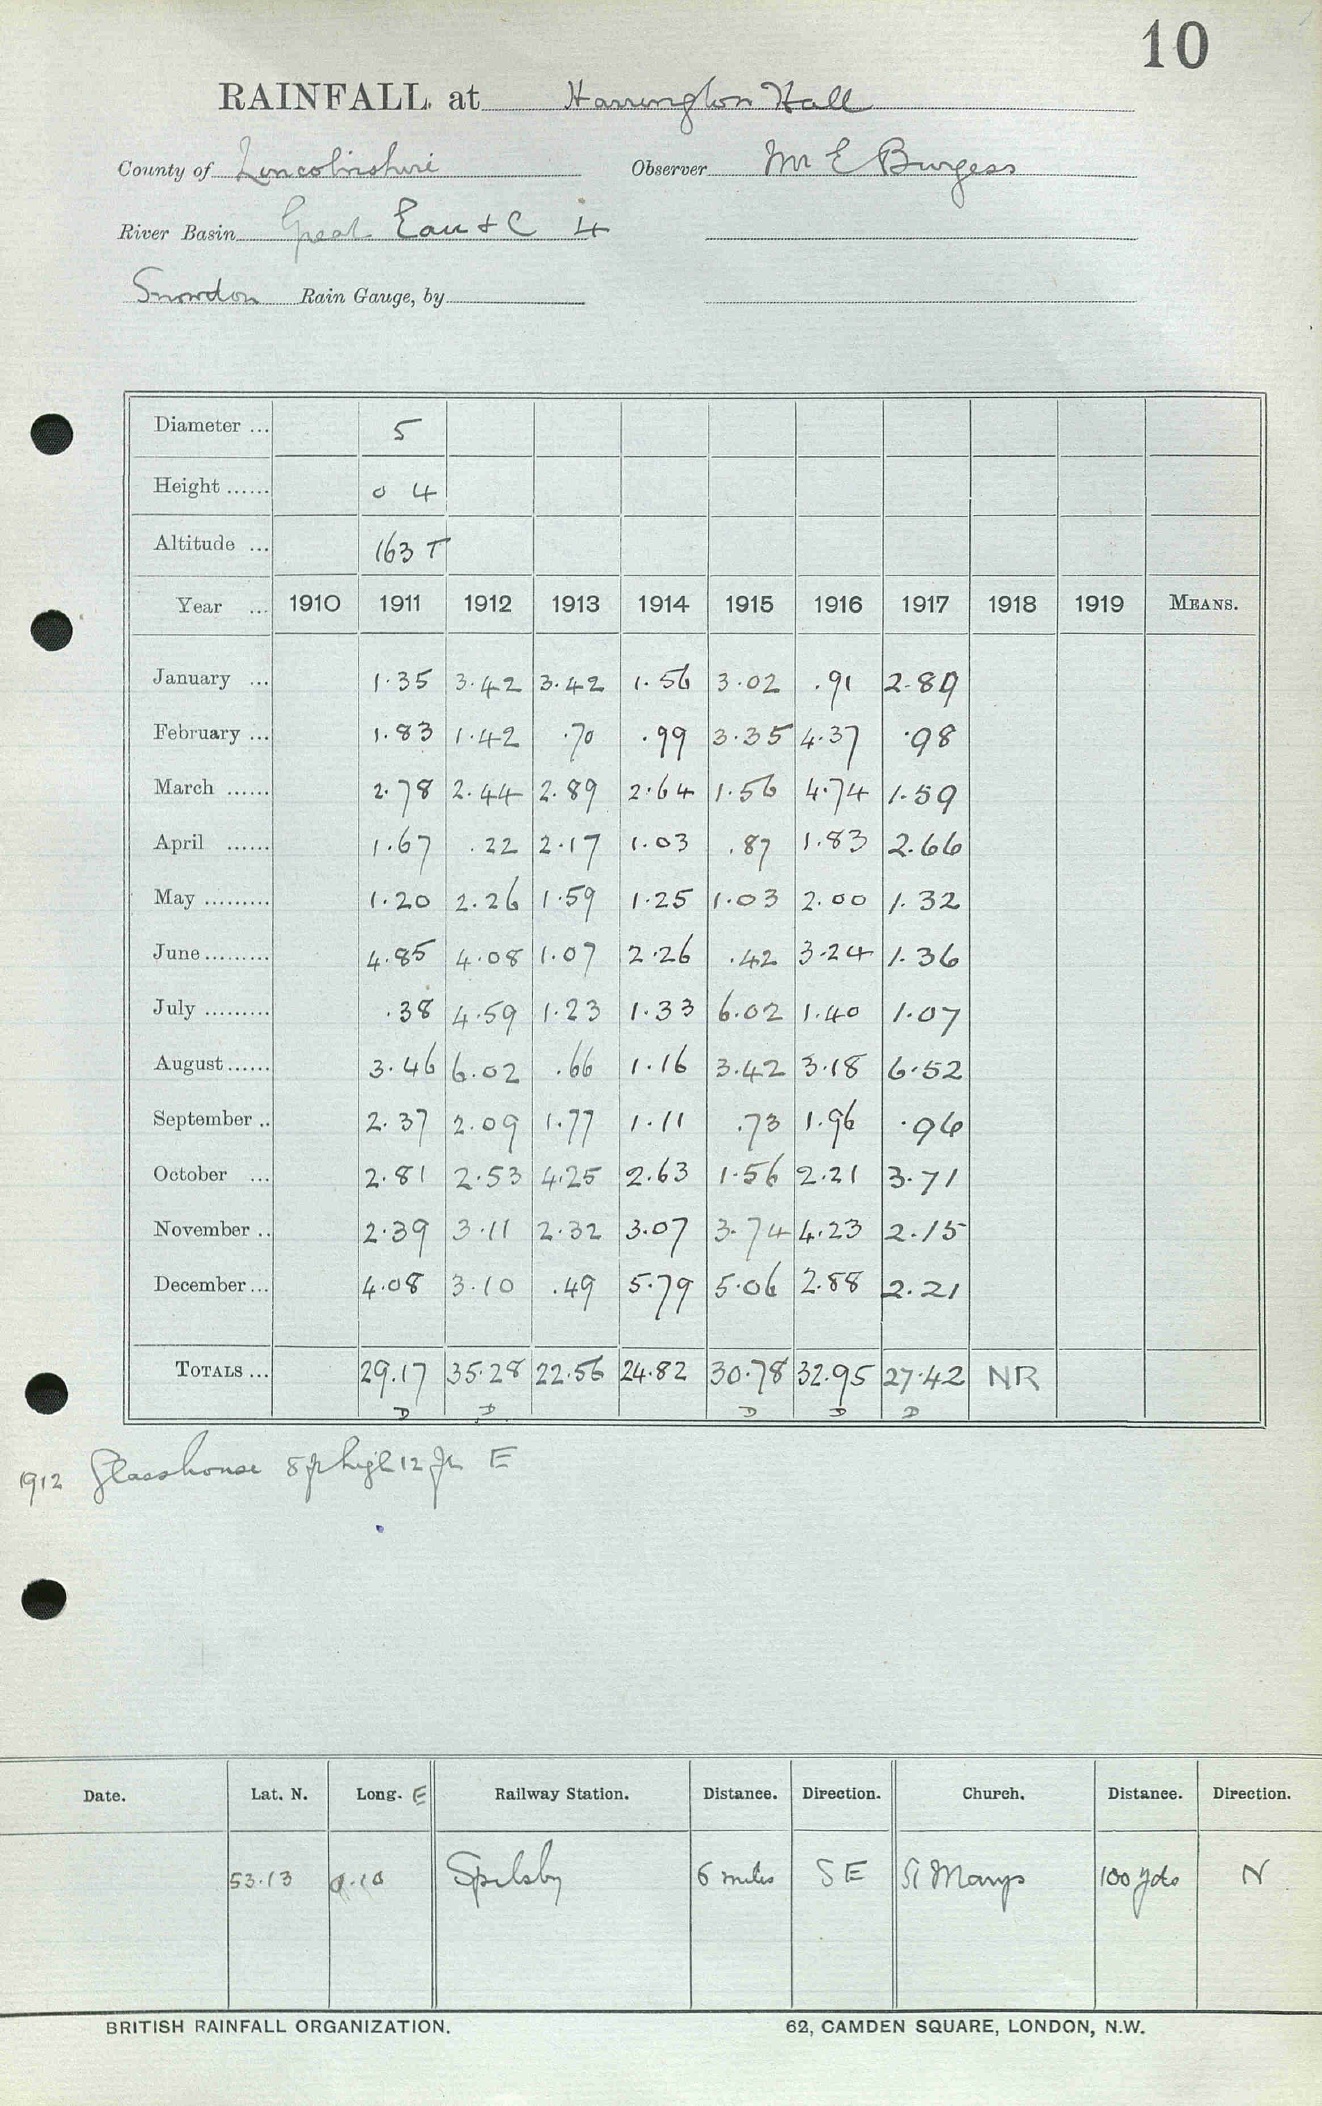 10
RAINFALL at Harrington Hall
County of Lincolnshire Observer Mr E Burgess
River Basin Great Eau & C 4
Snowdon Rain Gauge, by
Diameter ... 5
Height ...... 0 4
Altitude ... 163 T
Year ... 1910 1911 1912 1913 1914 1915 1916 1917 1918 1919 MEANS.
January ... 1.35 3.42 3.42 1.56 3.02 .91 2.89
February ... 1.83 1.42 .70 .99 3.35 4.37 .98
March ...... 2.78 2.44 2.89 2.64 1.56 4.74 1.59
April ...... 1.67 .22 2.17 1.03 .87 1.83 2.66
May ......... 1.20 2.26 1.59 1.25 1.03 2.00 1.32
June ......... 4.85 4.08 1.07 2.26 .42 3.24 1.36
July ......... .38 4.59 1.23 1.33 6.02 1.40 1.07
August ...... 3.46 6.02 .66 1.16 3.42 3.18 6.52
September .. 2.37 2.09 1.77 1.11 .73 1.96 .96
October ... 2.81 2.53 4.25 2.63 1.56 2.21 3.71
November .. 2.39 3.11 2.32 3.07 3.74 4.23 2.15
December ... 4.08 3.10 .49 5.79 5.06 2.88 2.21
TOTALS ... 29.17 35.28 22.56 24.82 30.78 32.95 27.42 NR
D D D D D
1912 Glasshouse 8 ft high 12 ft E
Date. Lat. N. Long. E Railway Station. Distance. Direction. Church. Distance. Direction.
53.13 0.10 Spilsby 6 miles SE St Marys 100 yds N
BRITISH RAINFALL ORGANIZATION. 62, CAMDEN SQUARE, LONDON, N.W.